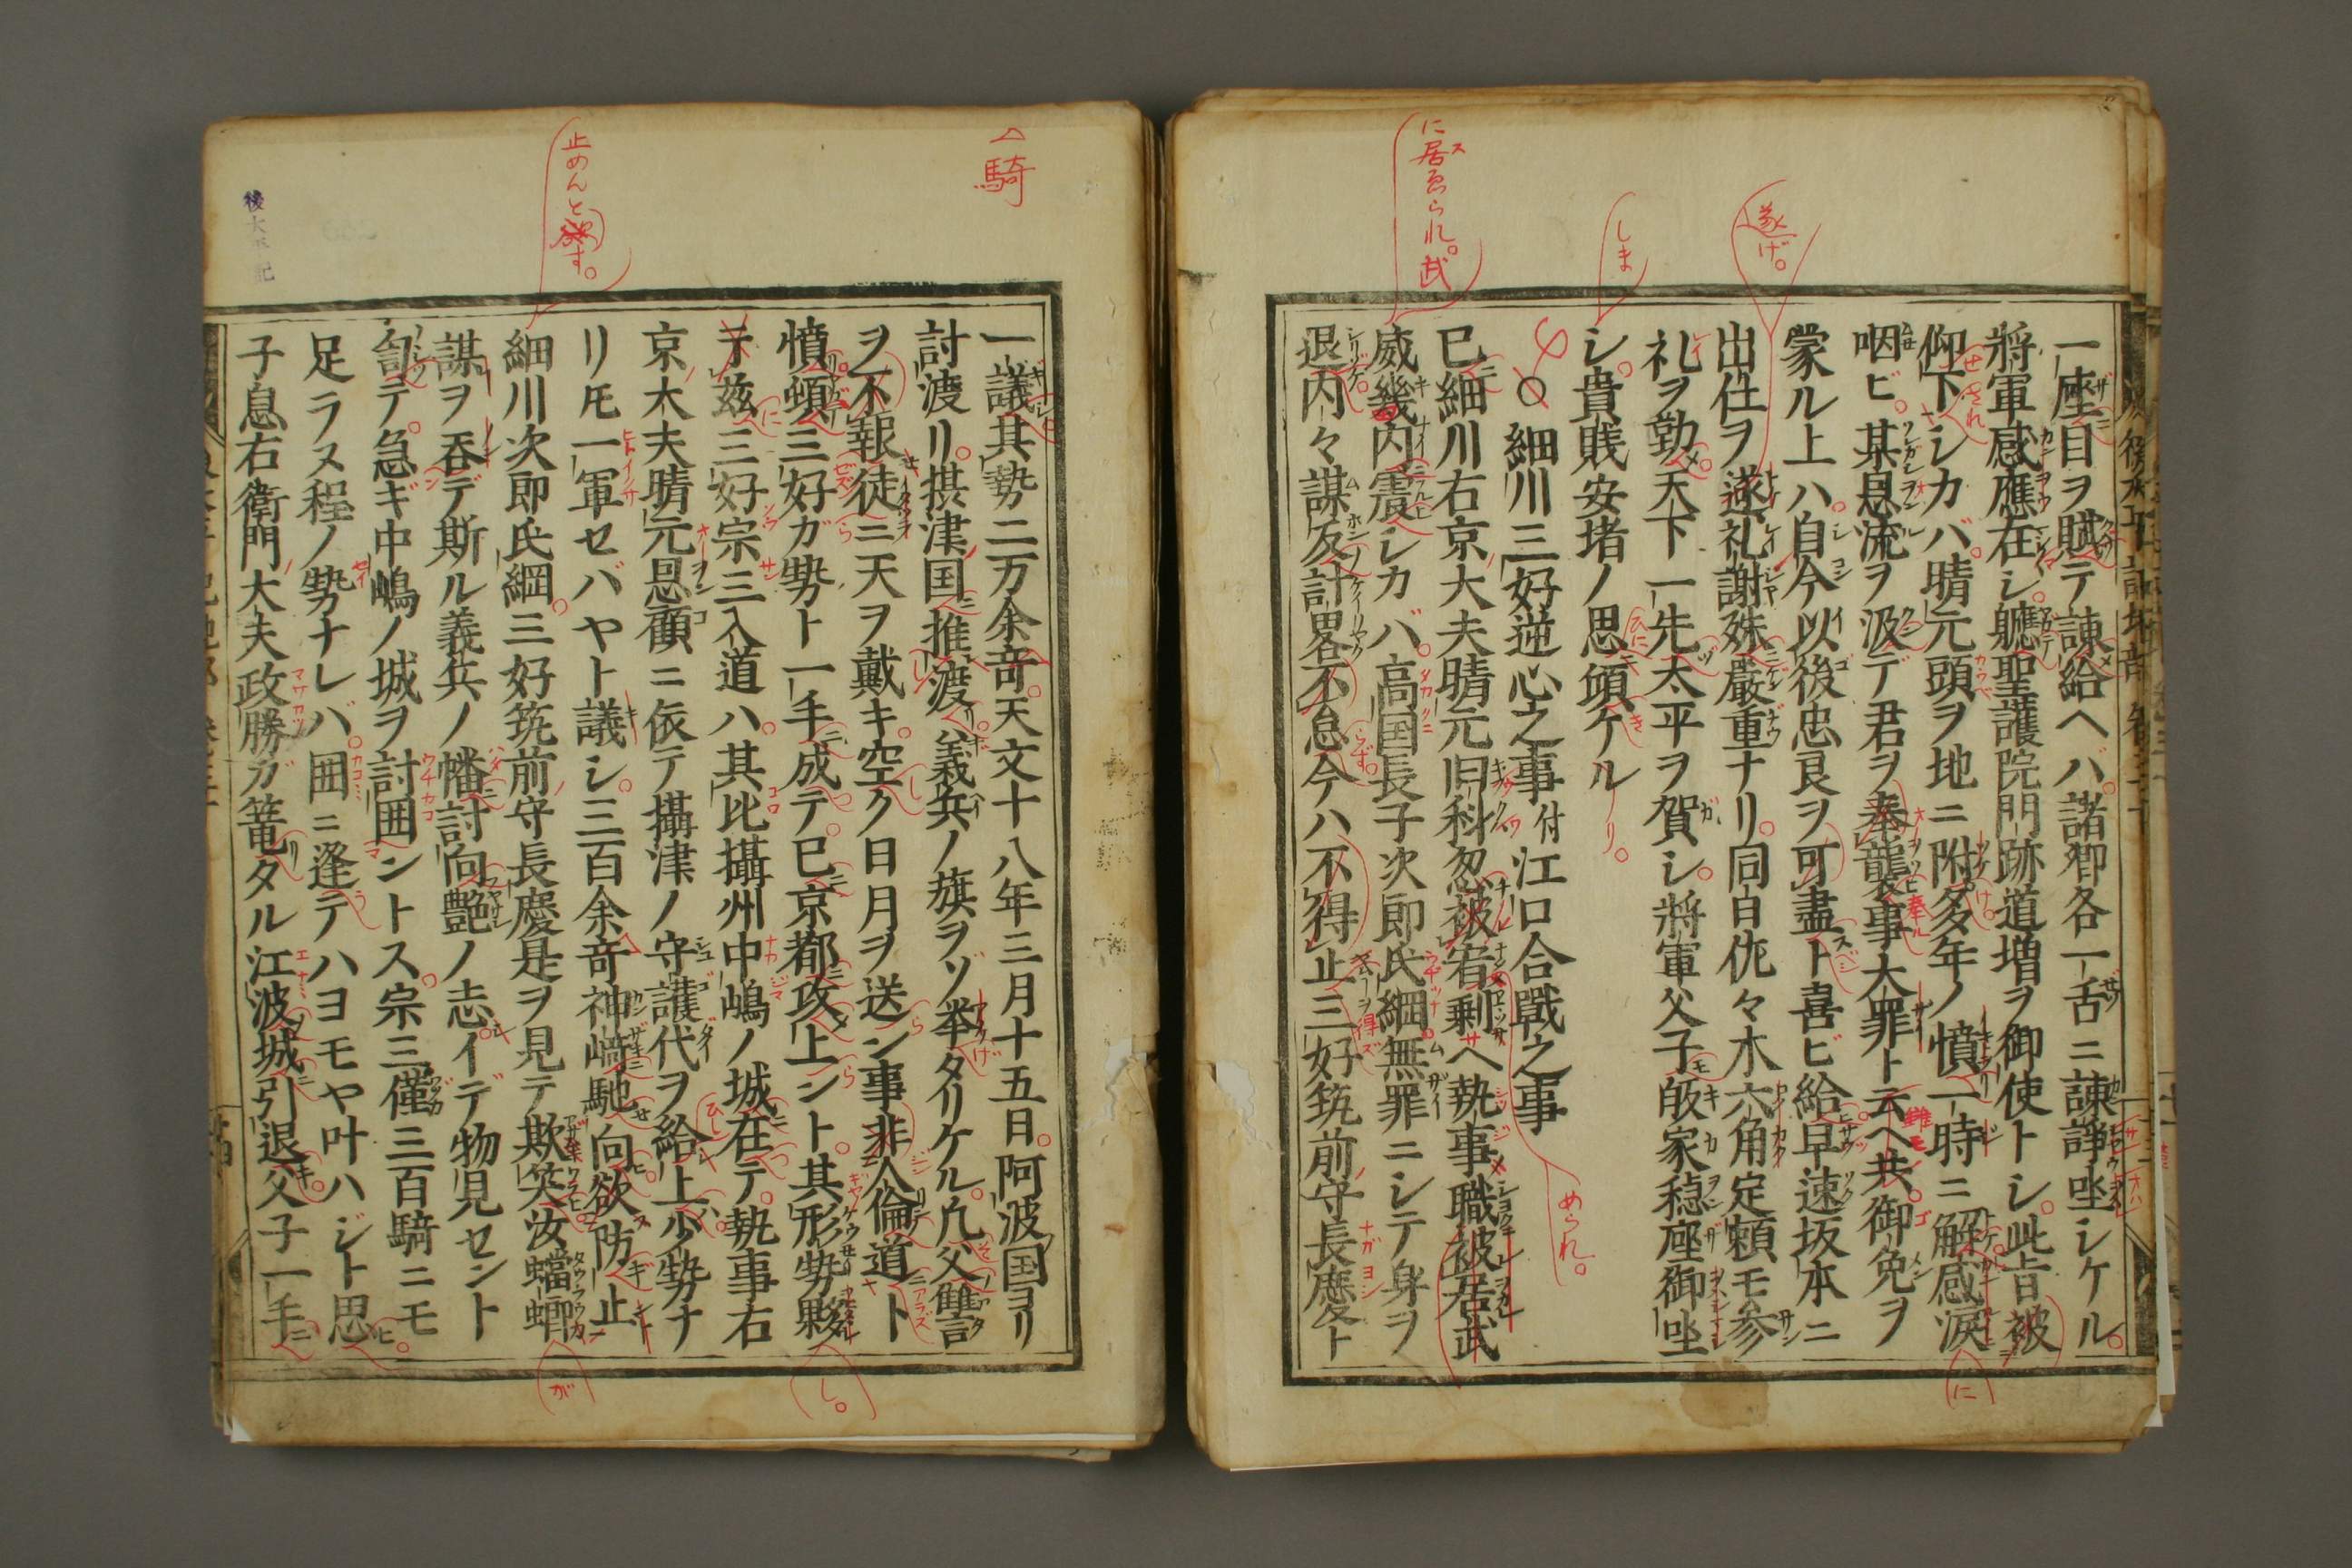 一座目ヲ賦テ諫給ヘバ諸卿各一舌ニ諫諍坐シケル
將軍感應在シ軈聖護院門跡道増ヲ御使トシ此旨被
仰下シカバ晴元頭ヲ地ニ附多年ノ憤一時ニ解感涙
咽ビ某恳流ヲ汲デ君ヲ奉襲事大罪ト云ヘ共御免ヲ
蒙ル上ハ自今以後忠良ヲ可盡ト喜ビ給早速坂本ニ
出仕ヲ遂礼謝殊嚴重ナリ同白佐々木六角定頼モ参
礼ヲ勤天下一先太平ヲ賀シ將軍父子皈家穏座御坐
シ貴賎安堵ノ思傾ケル
○細川三好逆心之事付江口合戰之事
已細川右京大夫晴元旧科忽被宥剰ヘ執事職被居武
威幾内震シカバ高国長子次郎氏綱無罪ニシテ身ヲ
退内々謀反計畧不怠今ハ不得止三好筑前守長慶ト
一議其勢二万余竒天文十八年三月十五日阿波国ヨリ
討渡リ摂津国推渡義兵ノ旗ヲゾ挙タリケル凢父讐
ヲ不報徒三天ヲ戴キ空ク日月ヲ送ン事非人倫道ト
憤頓三好ガ勢ト一手成テ已京都攻上ントス其形勢夥
于茲三好宗三入道ハ其比攝州中嶋ノ城在テ執事右
京大夫晴元恩顧ニ依テ攝津ノ守護代ヲ給上少勢ナ
リ𪜈一軍セバヤト議シ三百余竒神﨑馳向欲防止
細川次郎氏綱三好筑前守長慶是ヲ見テ欺笑汝蟷螂
謀ヲ呑デ斯ル義兵ノ幡討向艶ノ志イデ物見セント
訇テ急ギ中嶋ノ城ヲ討囲ントス宗三僅三百騎ニモ
足ラヌ程ノ勢ナレバ囲ニ逢テハヨモヤ叶ハジト思
子息右衛門大夫政勝ガ篭タル江波城引退父子一手
騎
止めんと欲す。
に居ゑられ。武
しま
遂げ。
められ。
に
し。
が
後太平記